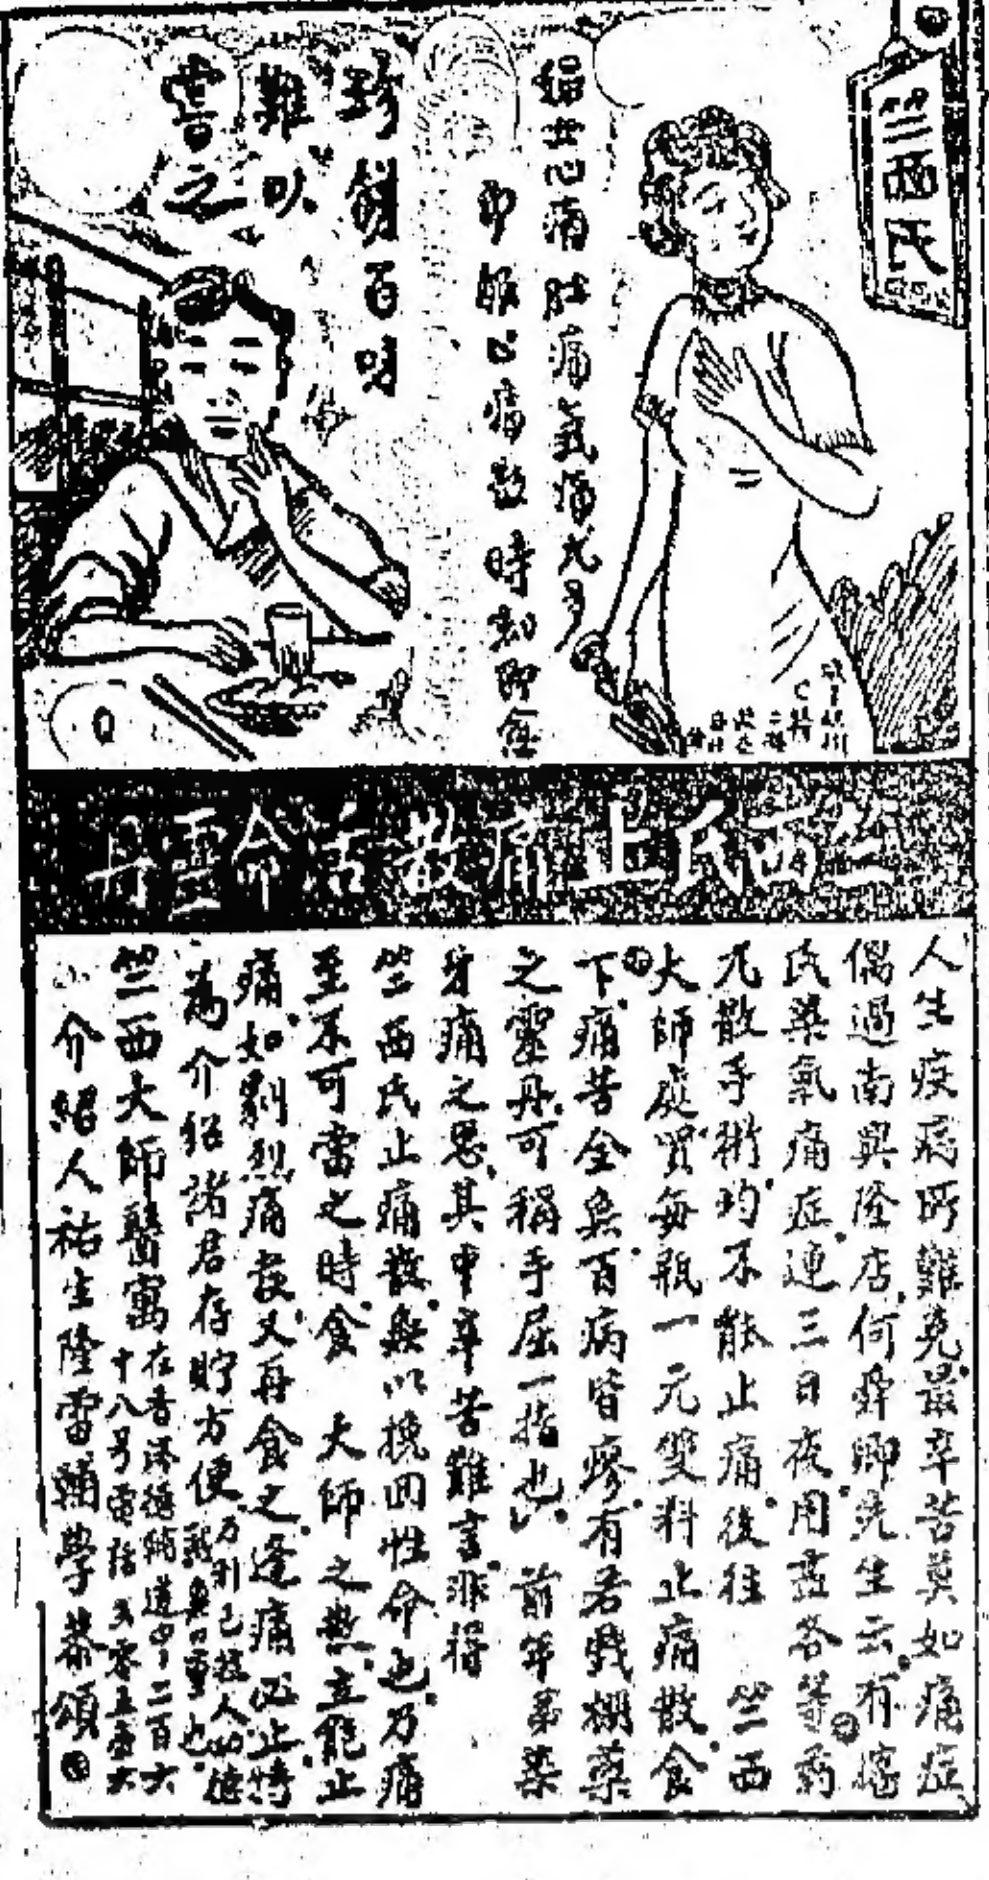 竺西氏
婦女心痛肚痛氣痛尤多
即服此痛散時刻即愈
珍饈百味
難以
嘗之
竺西氏止痛散活命靈丹
人生疾病所難免最辛苦莫如痛症
偶過南興隆店何舜卿先生云有
氏藥氣痛症連三日夜用盡各等药
凡散手術均不能止痛後往 竺西
大師處買每瓶一元雙料止痛散食
下痛苦全無百病皆瘳有若戥棚藥
之靈丹可稱手屈一指也 前年弟染
牙痛之患其中辛苦難言非得
竺西氏止痛散無以挽回性命也乃痛
至不可當之時食 大師之藥立能止
痛如劇烈痛發又再食之逢痛必止特
為介紹諸君存貯方便
竺西大師醫寓在香港德輔道中二百六
十八号電話
介紹人祐生隆雷輔學恭頌